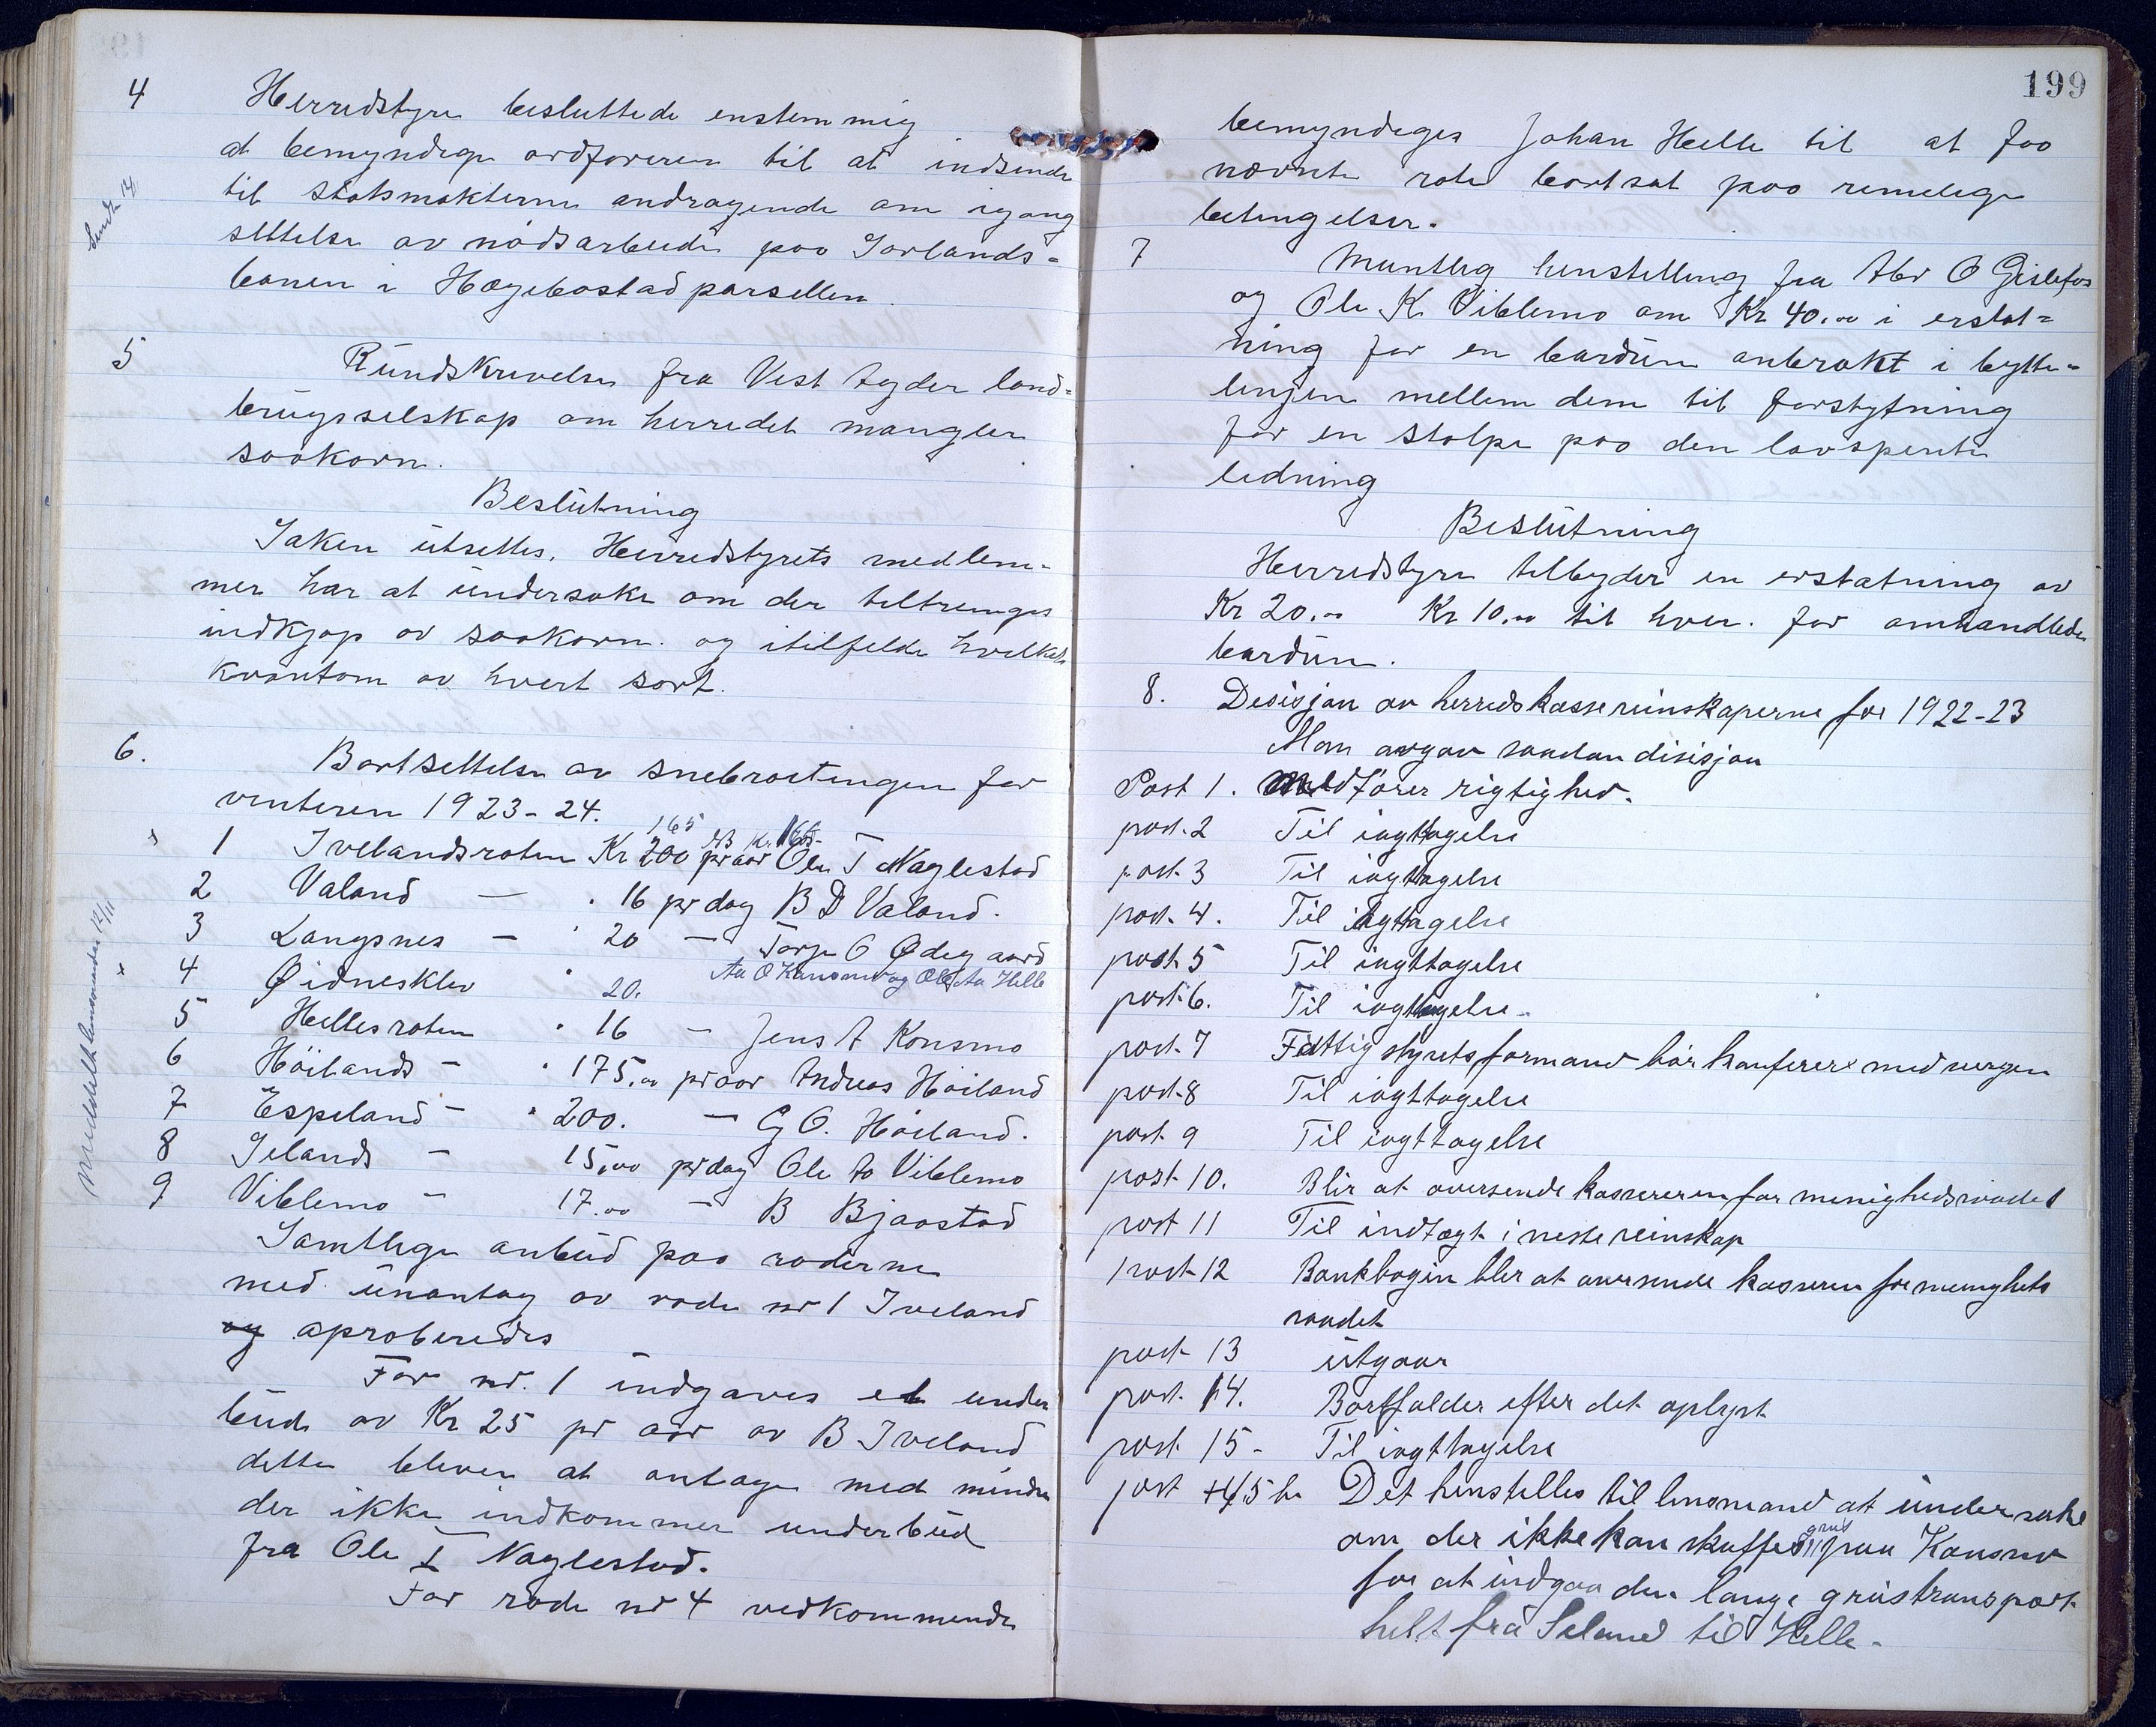 4 Herredstyre besluttede enstemmig
at bemyndige ordføreren til at indsende
til statsmakterne andragende om igang
settelse av nødsarbeide paa Sørlands-
banen i Hægebostadparsellen.
Sendt
5 Rundskrivelse fra Vest Agder land-
brugsselskap om herredet mangler
saakorn.
Beslutning
Saken utsettes. Herredstyrets medlem-
mer har at undersøke om der tiltrenges
indkjøp av saakorn. og itilfelde hvilket
kvantom av hvert sort.
6. Bortsettelse av snebrøitingen for
vinteren 1923-24.
165 NB Kr 165-
1 Ivelandsroten Kr 200 pr aar Ole T Naglestad
2 Valand — . 16 pr dag B D Valand.
3 Langsnes — . 20 — Tarje O Ødegaard
4 Øidnesklev . 20. Aa O Konsmo og Ole Aa Helle
5 Hellesroten . 16 — Jens A Konsmo
6 Høilands — . 175.00 pr aar Andreas Høiland
7 Espeland — . 200. — G O. Høiland.
8 Selands — 15,00 pr dag Ole Aa Viblemo
9 Viblemo — 17.00 — B Bjaastad
Meddelt vedkommende 12/11
Samtlige anbud paa roderne
med unantag av rode nr 1 Iveland
og aproberedes
For nr. 1 indgaves et under
bud av Kr 25 pr aar av B Iveland
dette blever at antage med mindre
der ikke indkommer underbud
fra Ole T Naglestad.
For rode nr 4 vedkommende
199
bemyndiges Johan Helle til at faa
nævnte rote bortsat paa rimelige
betingelser.
7 Muntlig henstilling fra Abr O Gislefos
og Ole K Viblemo om Kr 40.00 i erstat-
ning for en bardun anbrakt i bytte-
linjen mellem dem til forstytning
for en stolpe paa den lavspente
ledning
Beslutning
Herredstyre tilbyder en erstatning av
Kr 20.00 Kr 10.00 til hver. for omhandlede
bardun.
8. Desisjon av herredskassereinskaperne for 1922-23
Man avgav saadan disisjon
Post 1. Medfører rigtighed.
post. 2 Til iagttagelse
post. 3 Til iagttagelse
post. 4. Til iagttagelse
post 5 Til iagttagelse
post. 6. Til iagttagelse.
post. 7 Fattigstyrets formand bør konferere med vergen
post. 8 Til iagttagelse
post. 9 Til iagttagelse
post 10. Blir at oversende kassereren for menighedsraadet
post 11 Til indtægt i neste reinskap
post 12 Bankbogen blir at oversende kasseren for menighets
raadet
post 13 utgaar
post. 14. Bortfalder efter det oplyst
post 15- Til iagttagelse
post +45 ba Det henstilles til lensmand at undersøke
om der ikke kan skaffes grus paa Konsmo
for at indgaa den lange grustransport
helt fra Seland til Helle.